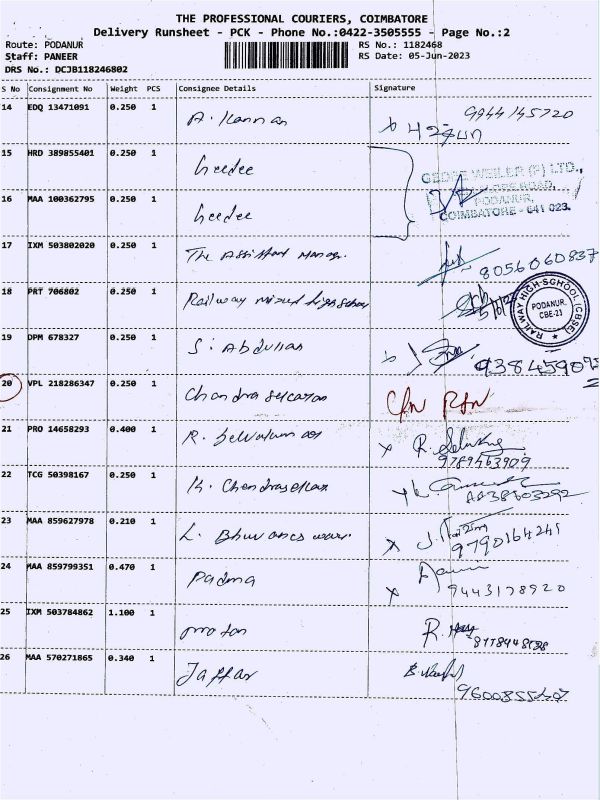 THE PROFESSIONAL COURIERS, COIMBATORE
Delivery Runsheet - PCK - Phone No.:0422-3505555 - Page No.:2
Route: PODANUR
Staff: PANEER
DRS No.: DCJB118246802
RS No.: 1182468
RS Date: 05-Jun-2023
S No Consignment No Weight PCS Consignee Details Signature
14 EDQ 13471091 0.250 1 A. Kannan 9944145720
15 HRD 389855401 0.250 1 heedee
GEDEE WEILER (P) LTD.,
PODANUR,
COIMBATORE - 641 023.
16 MAA 100362795 0.250 1 heedee
17 IXM 503802020 0.250 1 The Assistant Manager. 8056060837
18 PRT 706802 0.250 1 Railway mixed high school
RAILWAY HIGH SCHOOL (CBSE)
PODANUR,
CBE-23
19 DPM 678327 0.250 1 S. Abdullah
20 VPL 218286347 0.250 1 Chandra sekaran
21 PRO 14658293 0.400 1 R. Selvakumar
9789463909
22 TCG 50398167 0.250 1 K. Chandrasekar
23 MAA 859627978 0.210 1 L. Bhuvaneswari
9790164241
24 MAA 859799351 0.470 1 Padma
9443178920
25 IXM 503784862 1.100 1 proton
26 MAA 570271865 0.340 1 Jaffar